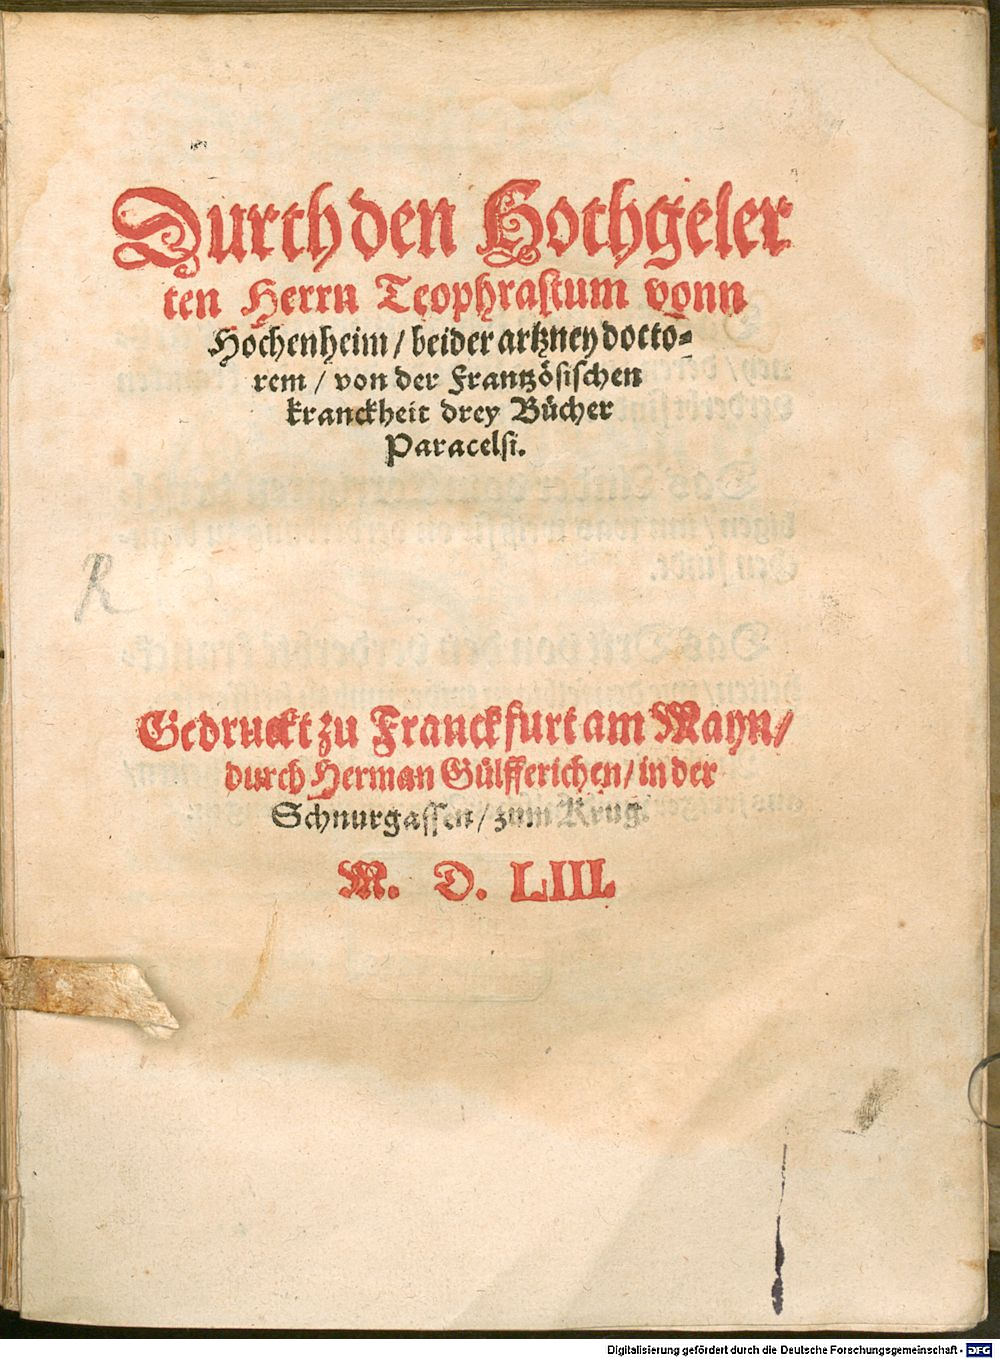 Durch den Hochgeler
ten Herrn Teophrastum vonn
Hochenheim / beider artzney docto-
rem / von der Frantzösischen
kranckheit drey Bücher
Paracelsi.
R
Gedruckt zu Franckfurt am Mayn /
durch Herman Gülfferichen / in der
Schnurgassen / zum Krug.
M. D. LIII.
Digitalisierung gefördert durch die Deutsche Forschungsgemeinschaft - DFG